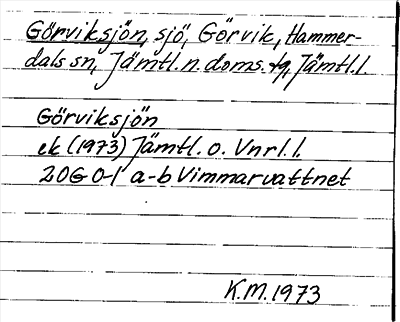 Görviksjön, sjö, Görvik, Hammer-
dals sn, Jämtl. n. doms. fg, Jämtl. l.
Görviksjön
ek (1973) Jämtl. o. Vnrl. l.
20G 0-1 a-b Vimmarvattnet
K.M. 1973